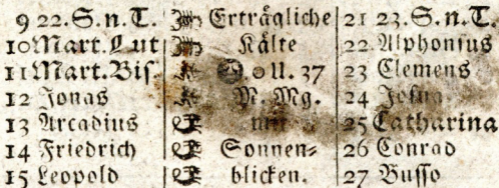 9 22.S.n.T. Erträgliche 21 23.S.n.T.
10 Mart.Lut Kälte 22 Alphonsus
11 Mart.Bis. 0.U.37 23 Clemens
12 Jonas N.Mg. 24 Josua
13 Arcadius mit 25 Catharina
14 Friedrich Sonnen= 26 Conrad
15 Leopold blicken. 27 Busso